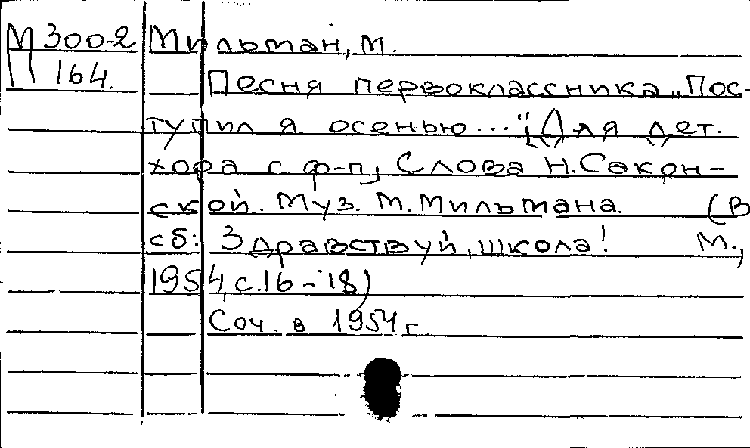 М 300-2 Мильман, М.
П 164. Песня первоклассника „Пос-
тупил я осенью..." (Для дет.
хора с ф-п, Слова Н. Сакон-
ской. Муз. М. Мильмана. (В
сб: Здравствуй, школа! М.,
1954, с. 16-18)
Соч. в 1954 г.